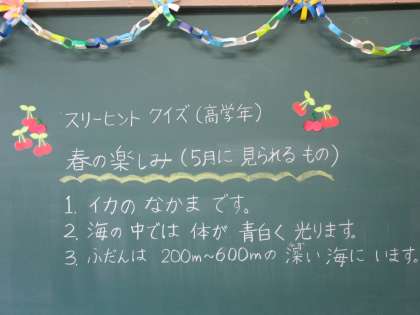 スリーヒント クイズ(高学年)
春の楽しみ(5月に 見られる もの)
1. イカの なかま です。
2. 海の 中では 体が 青白く 光ります。
3. ふだんは 200m〜600mの 深い 海に います。